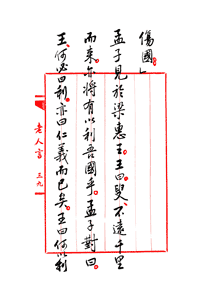 傷國」
孟子見於梁惠王。王曰。叟。不遠千里
而來。亦將有以利吾國乎。孟子對曰。
王。何必曰利。亦曰仁義而已矣。王曰何以利
老人言 三九